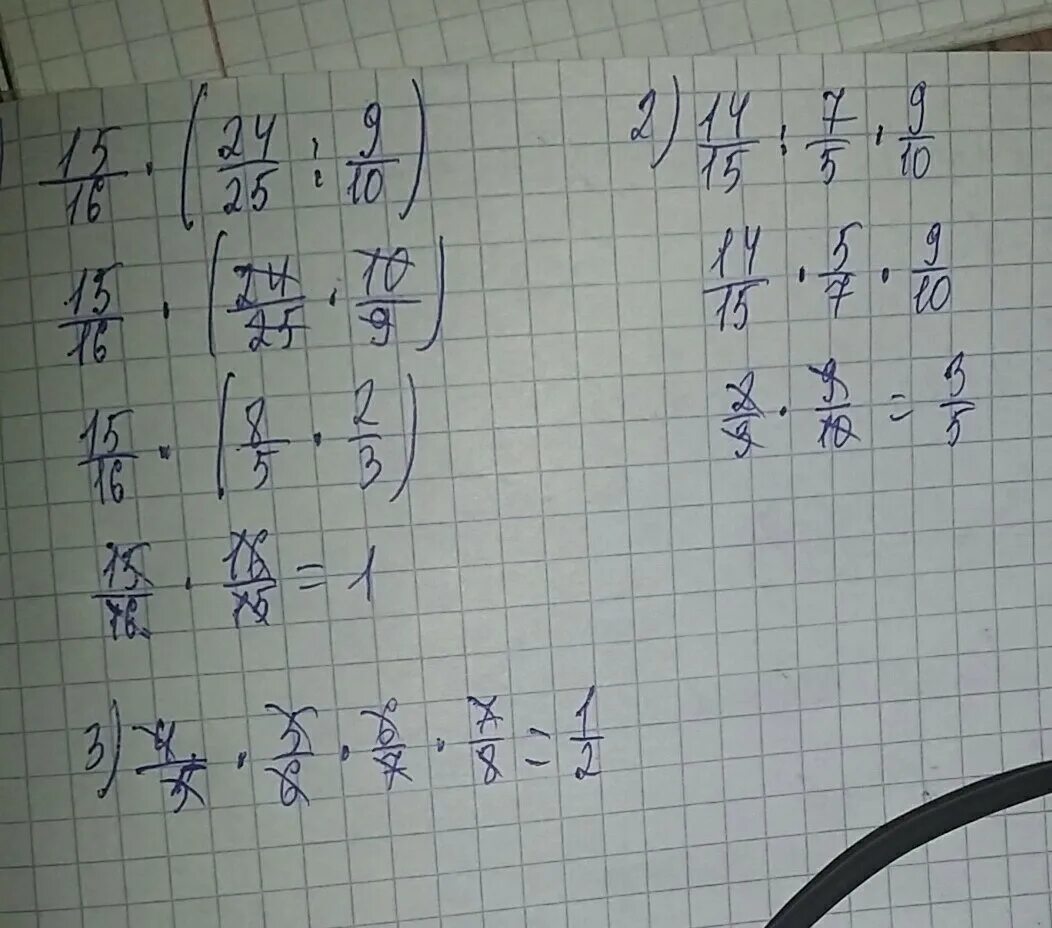 ) 15/16 · (24/25 : 9/10)
15/16 · (24/25 · 10/9)
15/16 · (8/5 · 2/3)
15/16 · 16/15 = 1
2) 14/15 : 7/5 · 9/10
14/15 · 5/7 · 9/10
2/3 · 9/10 = 3/5
3) 4/5 · 5/6 · 6/7 · 7/8 = 1/2